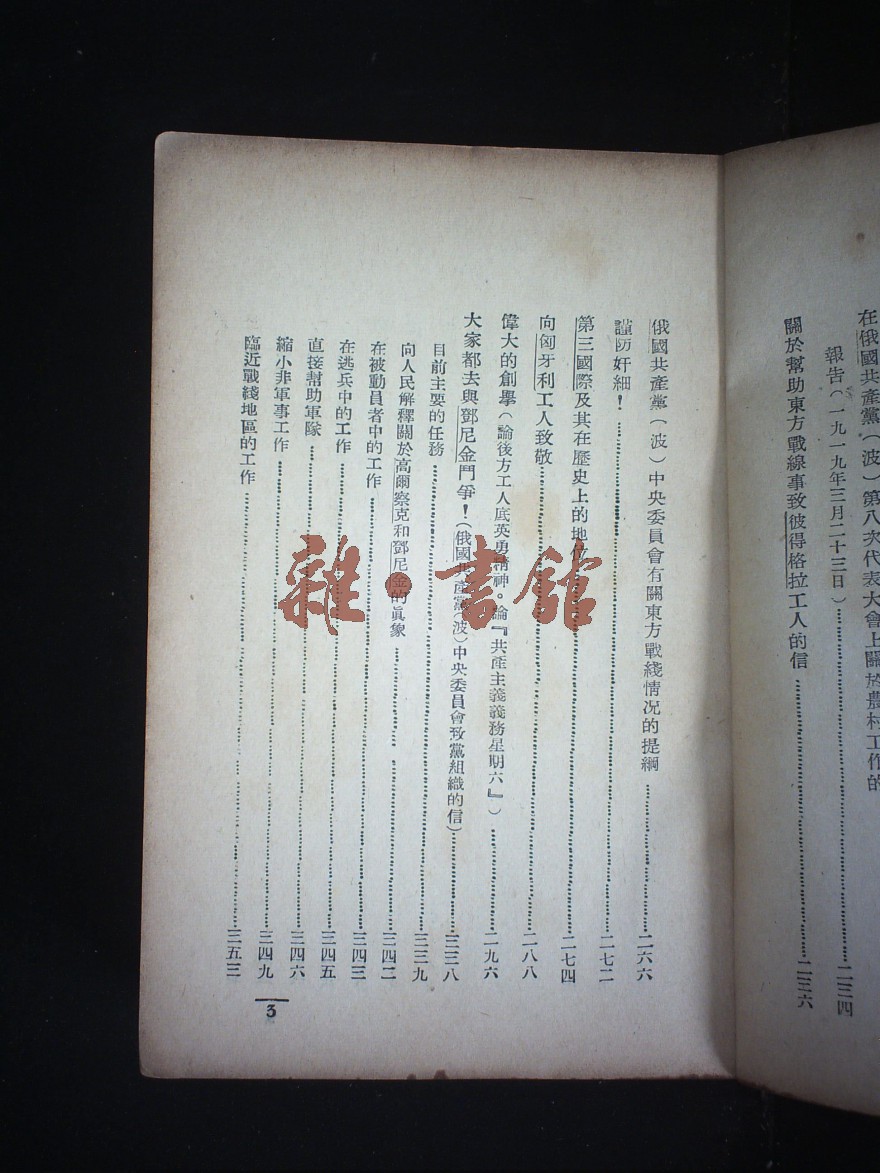 在俄國共產黨(波)第八次代表大會上關於農村工作的
報告(一九一九年三月二十三日)……二三四
關於幫助東方戰線事致彼得格拉工人的信……二三六
俄國共產黨(波)中央委員會有關東方戰綫情況的提綱……二六六
謹防奸細!……二七二
第三國際及其在歷史上的地位……二七四
向匈牙利工人致敬……二八八
偉大的創舉(論後方工人底英勇精神。論『共產主義義務星期六』)……二九六
大家都去與鄧尼金鬥爭!(俄國共產黨(波)中央委員會致黨組織的信)……三三八
目前主要的任務……三三九
向人民解釋關於高爾察克和鄧尼金的眞象……三四二
在被動員者中的工作……三四三
在逃兵中的工作……三四五
直接幫助軍隊……三四六
縮小非軍事工作……三四九
臨近戰綫地區的工作……三五三
3
雜·書館